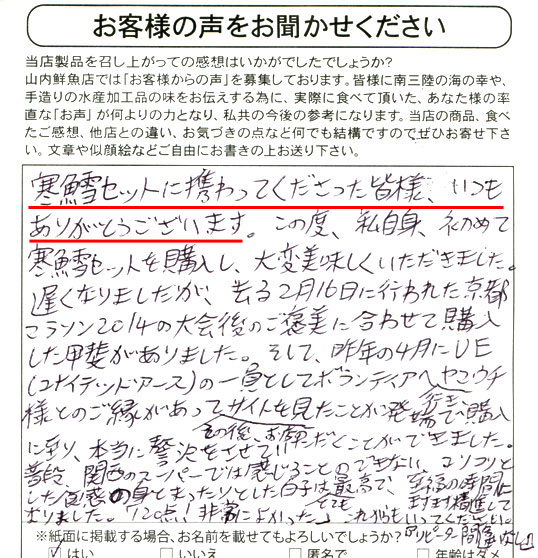 お客様の声をお聞かせください
当店製品を召し上がっての感想はいかがでしたでしょうか?
山内鮮魚店では「お客様からの声」を募集しております。皆様に南三陸の海の幸や、
手造りの水産加工品の味をお伝えする為に、実際に食べて頂いた、あなた様の率
直な「お声」が何よりの力となり、私共の今後の参考になります。当店の商品、食べ
たご感想、他店との違い、お気づきの点など何でも結構ですのでぜひお寄せ下さ
い。文章や似顔絵などご自由にお書きの上お送り下さい。
寒鱈セットに携わってくださった皆様、いつも
ありがとうございます。この度、私自身、初めて
寒鱈セットを購入し、大変美味しくいただきました。
遅くなりましたが、去る2月16日に行われた京都
マラソン2014の大会後のご褒美に合わせて購入
した甲斐がありました。そして、昨年の4月にUE
(ユナイテッドアース)の一員としてボランティアへ行き、ヤマウチ
様とのご縁があってサイトを見たことが発端で購入
に至り、本当に贅沢をさせて
その後、お
だくことができました。
普段、関西のスーパーでは感じることのできない、コリコリと
した食感の身とまったりとした白子は最高で、
とても
なりました。「120点!非常によかった!」これからもいってください。
リピーター間違いなし」
※紙面に掲載する場合、お名前を載せてもよろしいでしょうか?
はい いいえ 匿名で 年齢はダメ